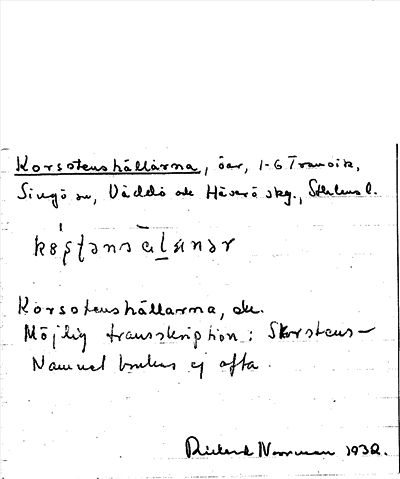 Korsotenshällarna, öar, 1-6 Tranvik,
Singö sn, Väddö och Häverö skg., Sthlms l.
Korsotenshällarna, ök.
Möjlig transskription: Skorstens-
Namnet brukas ej ofta.
Rickard Norrman 1932.